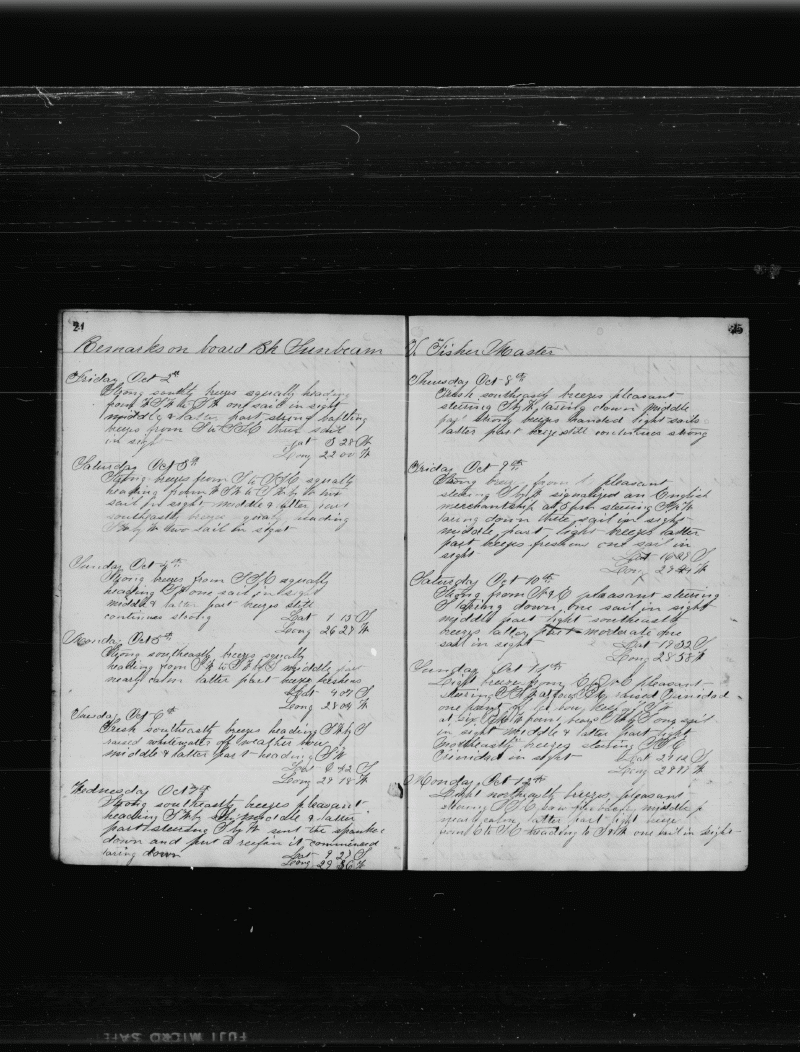 24
Remarks on board Bk Sunbeam
Friday Oct 2nd
Strong southly breezes squally heading
from W S W to S W one sail in sight
middle & latter part strong baffling
breezes from S to S E three sail
in sight
Lat 3 28 N
Long 22 00 W
Saturday Oct 3th
Strong breezes from S to S S E squally
heading from W S W to S W by W two
sail in sight middle & latter part
southeastly breezes squaly heading
S W by W two sail in sight
Sunday Oct 4th
Strong breezes from S S E squally
heading S W one sail in sight
middle & latter part breezes still
continues strong
Lat 1 15 S
Long 26 27 W
Monday Oct 5th
Strong southeastly breezes squally
heading from S W to S W by S middle part
nearly calm latter part breeze freshens
Lat 4 07 S
Long 28 04 W
Tuesday Oct 6th
Fresh southeastly breezes heading S W by S
raised whitewater off weather bow
middle & latter part heading S W
Lat 6 42 S
Long 29 18 W
Wednesday Oct 7th
Strong southeastly breezes pleasant
heading S W by S middle & latter
part steering S by W sent the spanker
down and put a reef in it commenced
taring down
Lat 9 27 S
Long 29 36 W
25
V. Fisher Master
Thursday Oct 8th
Fresh southeastly breezes pleasant
steering S by W taring down middle
part strong breezes handed light sails
latter part breeze still continues strong
Friday Oct 9th
Strong breezes from pleasant
steering S by W signalized an English
merchantship at 5 pm steering S by W
taring down three sail in sight
middle part light breezes latter
part breezes freshens one sail in
sight
Lat 16 28 S
Long 29 44 W
Saturday Oct 10th
Strong from pleasant steering
S taring down one sail in sight
middle part light southeastly
breezes latter part moderate one
sail in sight
Lat 19 32 S
Long 28 58 W
Sunday Oct 11th
Light breezes from pleasant
steering raised Trinidad
one point off
at six bore sail
in sight middle & latter part light
Northeastly breezes steering S S E
Trinidad in sight
Lat
Long
Monday Oct 12th
Light northeastly breezes pleasant
steering S S E middle p
nearly calm latter part light breeze
from heading one sail in sight
FUJI MICRO SAFE